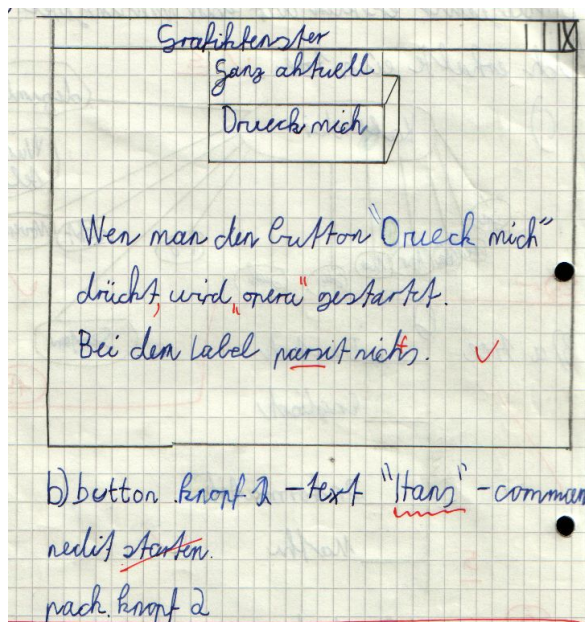 Grafikfenster
Ganz aktuell
Drueck mich
Wen man den button "Drueck mich"
drückt, wird "opera" gestartet.
Bei dem Label parsit nichts.
b) button .knopf 2 -text "Hans" -comman
nedit starten.
pack .knopf 2